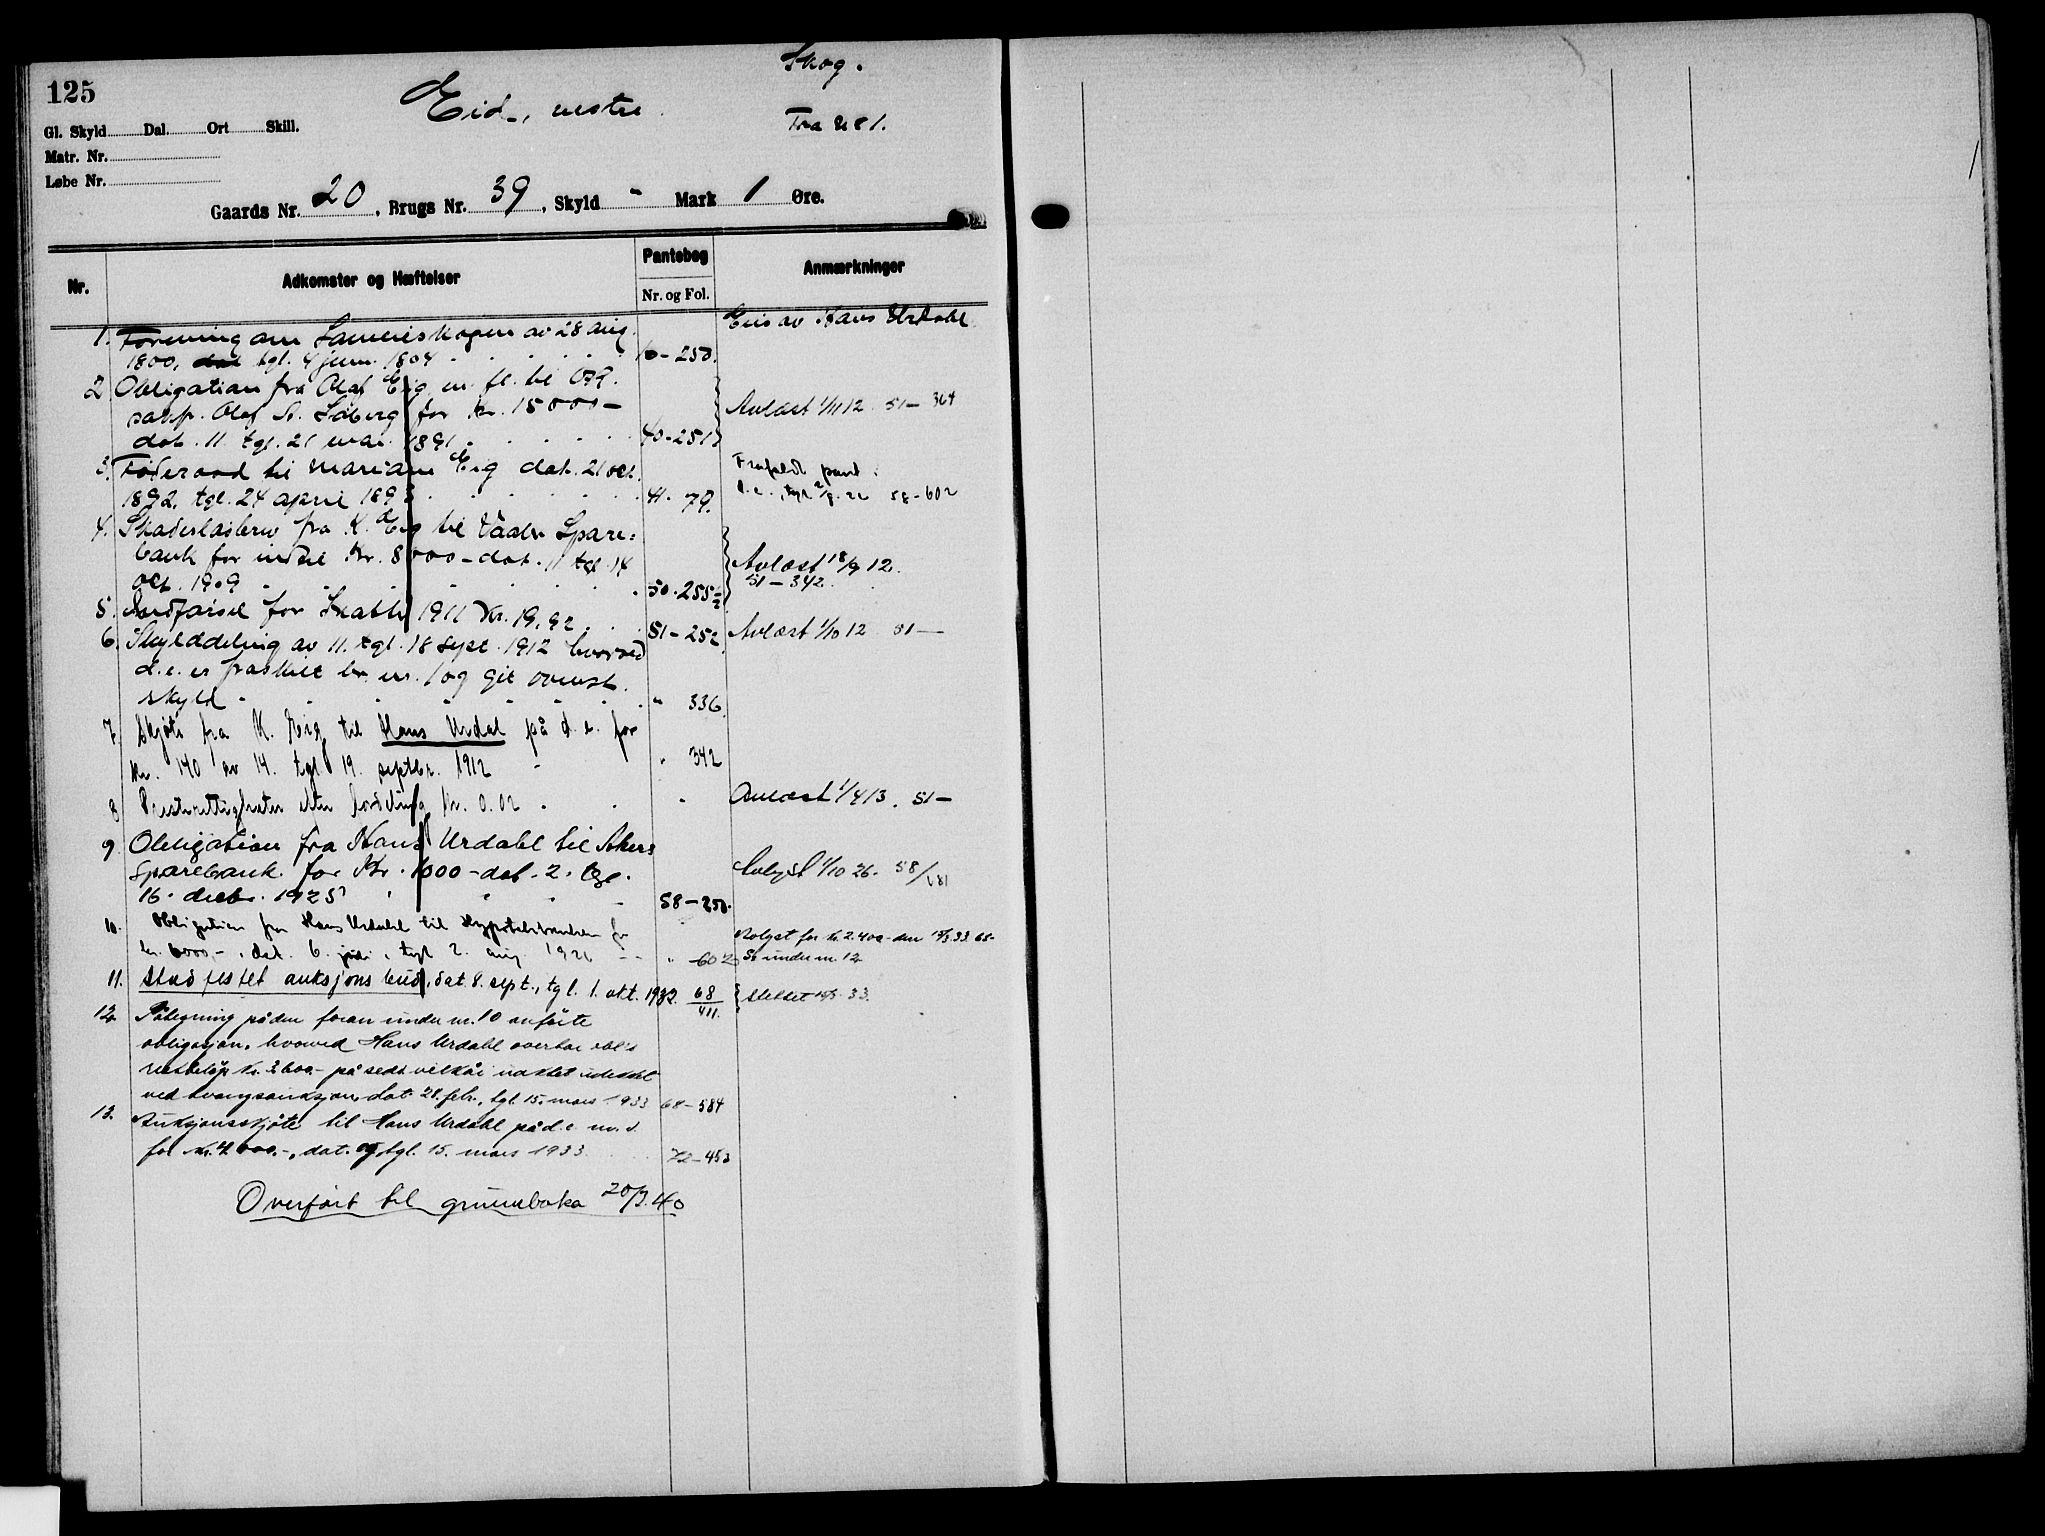 125
Skog.
Eid, vestre.
Fra
Gl. Skyld Dal. Ort Skill.
Matr. Nr.
Løbe Nr.
Gaards Nr. 20, Brugs Nr. 39, Skyld - Mark 1 Øre.
Nr. Adkomster og Hæftelser Pantebog Nr. og Fol. Anmærkninger
Eies av Hans Urdahl
1. Forening om Sameieskogen av 28 aug.
1800, dat tgl. 4 juni 1804 10-250.
2 Obligation fra Olaf Eig m. fl. til
Olaf A. Søberg for Kr. 15000- Avlæst 1/11 12 51-364
dat. 11 tgl. 21 mai 1891 40-251
3. Føderaad til Mariane Eig dat. 21 oct. Frafaldt pant.
1892, tgl. 24 april 1893 41-79. d.e., tgl. 2/8.26 58-602
4. Skadesløsbrev fra K. Eig til Vaaler Spare-
bank for indtil Kr. 8000- dat. 11 tgl. 14 Avlæst 18/9 12.
oct. 1909 50-255 51-342
5. Utlæg for Skatter 1911 Kr. 19.92 51-252 Avlæst 1/10 12 51-
6. Skylddeling av 11. tgl. 18 sept. 1912 hvorved
d.e. er fraskilt br. nr. 1 og git ovenst.
skyld " 336.
7. Skjøte fra K. Eig til Hans Urdal på d.e. for
kr. 140 av 14. tgl. 19. septbr. 1912 " 342
8 kr. 0.02 " Avlæst 1/4 13. 51-
9. Obligation fra Hans Urdahl til Akers
Sparebank for Kr. 1000- dat. 2. tgl. Avlyst 1/10 26. 58/181
16. decbr. 1925 58-250.
10. Obligation fra Hans Urdahl til Hypotekbanken for Avlyst for kr. 2.400- den 15/3 33. 68-
kr. 6000,-, dat. 6. juli, tgl. 2. aug. 1926 " 602 Se under nr. 12
11. Stadfestet auksjonsbud, dat. 8. sept., tgl. 1. okt. 1932. 68/411. Slettet 15/3 33.
12. Påtegning på den foran under nr. 10 anførte
obligasjon, hvorved Hans Urdahl overtar obl's
restbeløp kr. 3600.- på sedv. vilkår
ved tvangsauksjon, dat. 28. febr., tgl. 15. mars 1933 68-584
13. Auksjonsskjøte til Hans Urdahl på d.e. m.v.
for kr. 4000.-, dat. og tgl. 15. mars 1933. 72-453
Overført til grunnboka 20/3.40